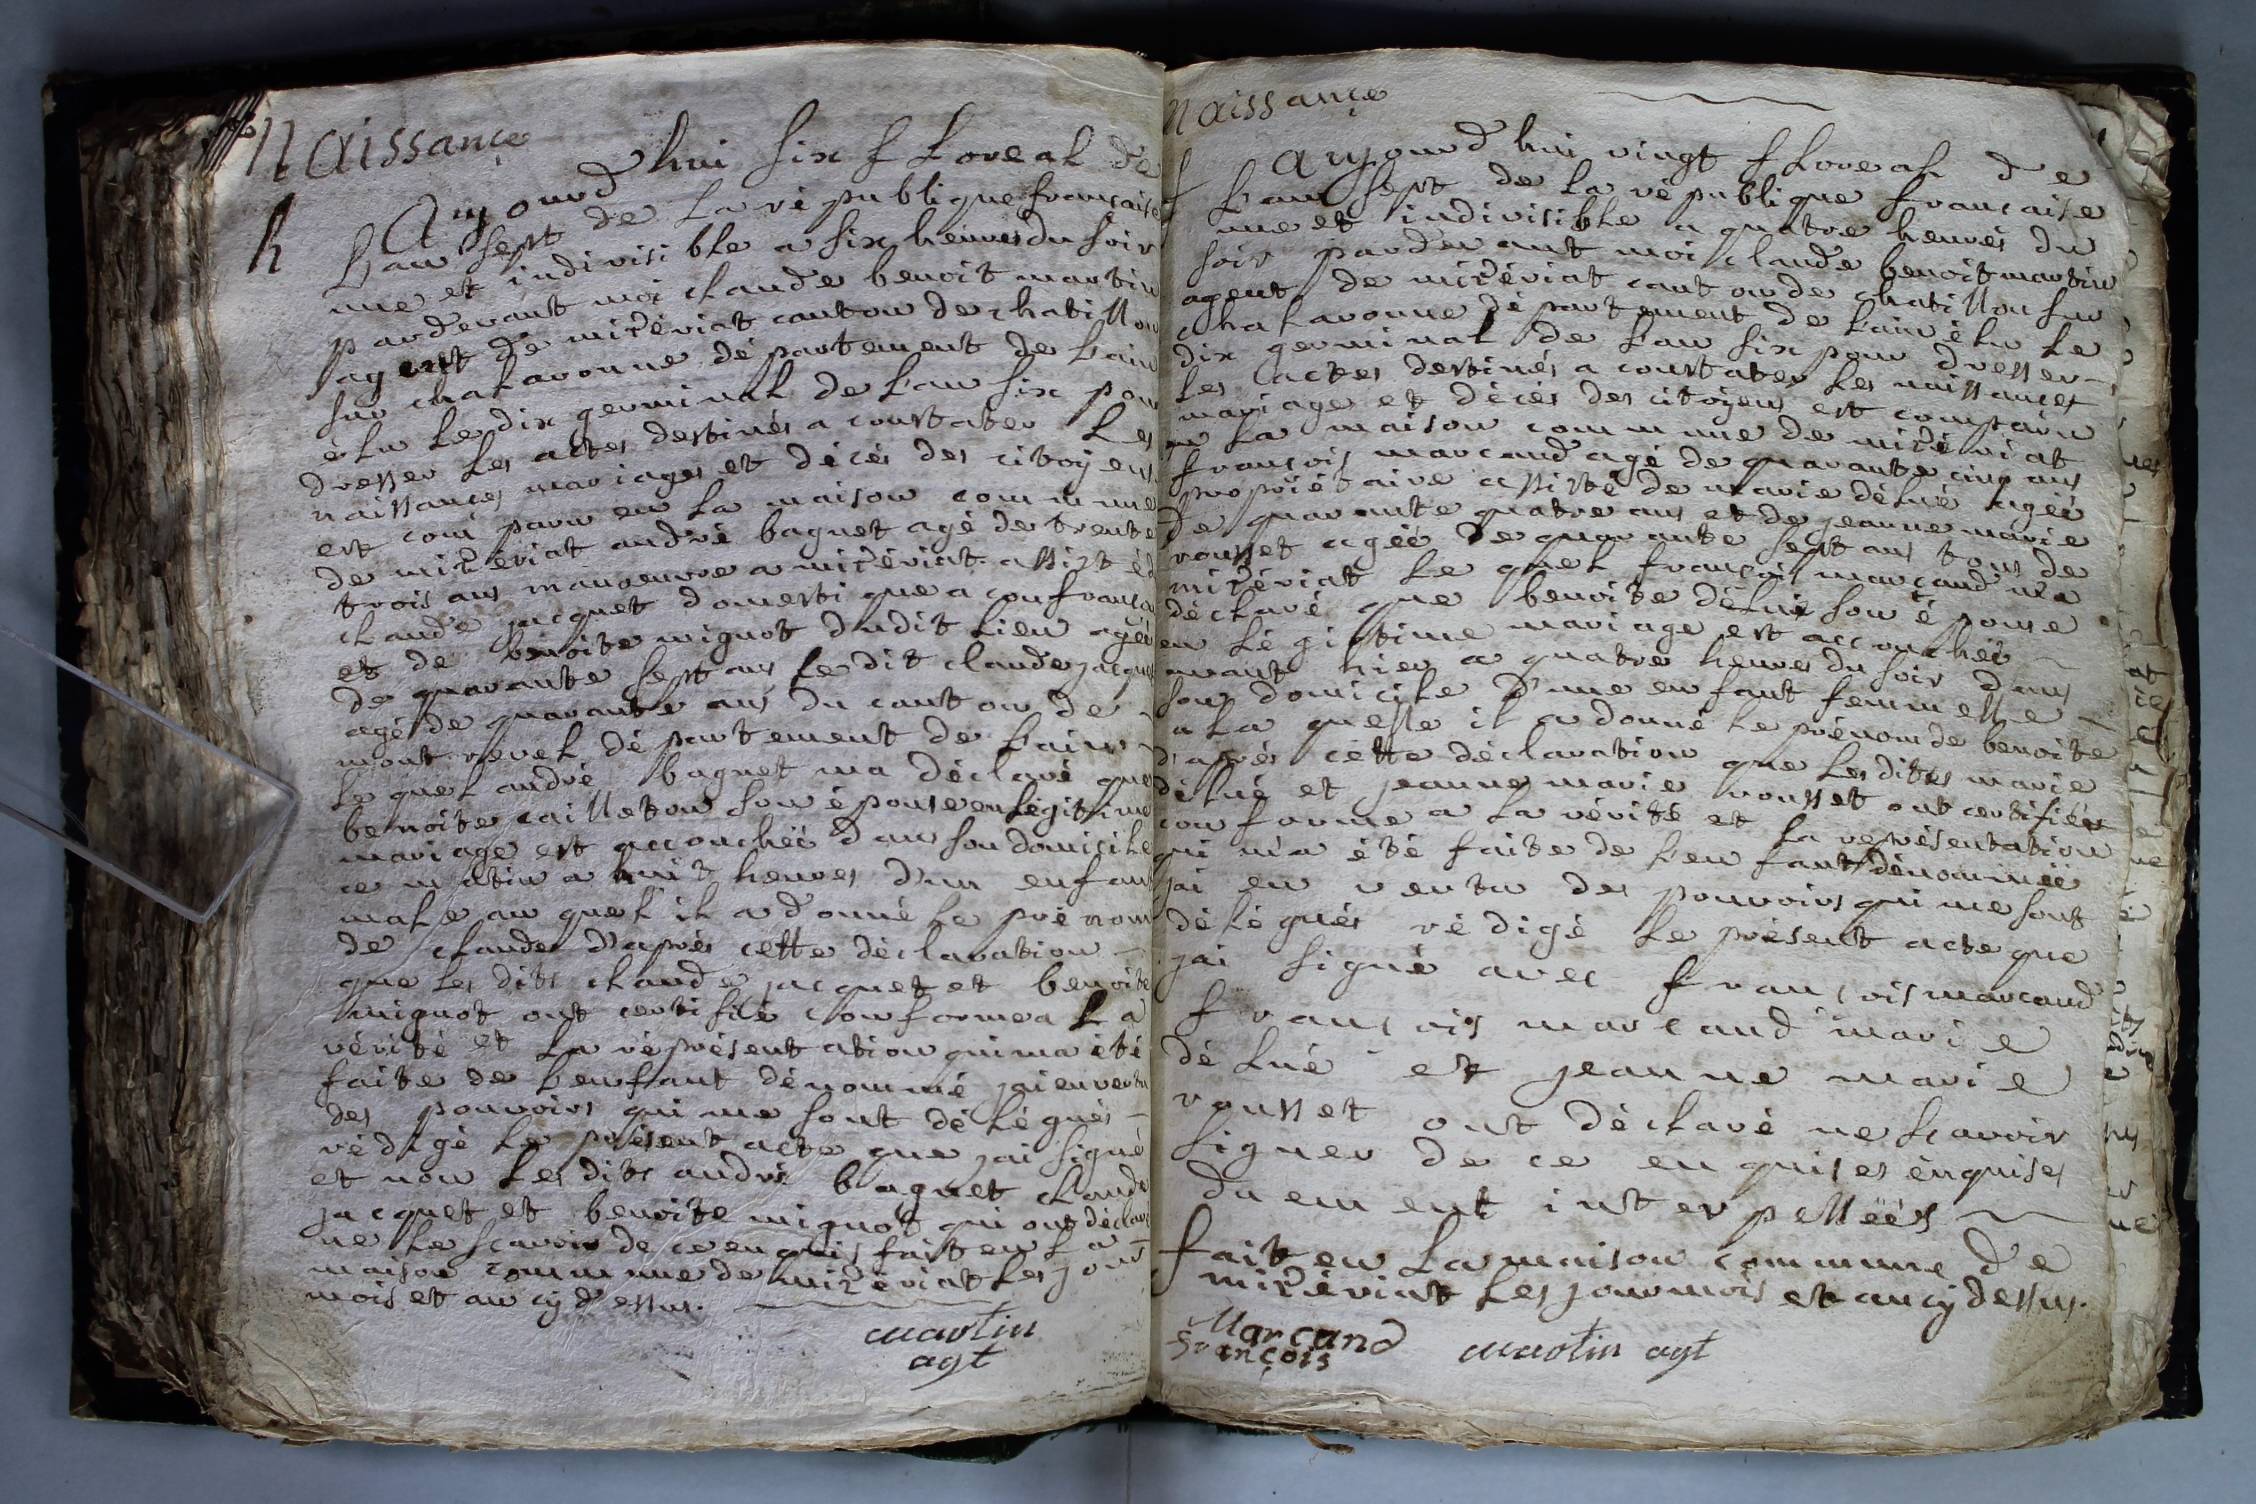 Naissançe
h
Aujourd'hui six floreal de
L'an sept de La république française
une et indivisible a six heures du soir
pardevant moi claude benoit martin
agent de miréviat canton de chatillon
sur chalaronne département de L'ain
élu Le dix germinal de L'an six pour
dresser Les actes destinés a constater Les
naissances mariages et décés des citoyens
est comparu en La maison commune
de miréviat andré baguet agé de trente
trois ans manoeuvre a miréviat assisté de
claude jacquet domestique a confrançon
et de benoite mignot dudit Lieu agée
de quarante sept ans Ledit claude jacquet
agé de quarante ans du canton de
montrevel département de L'ain
Le quel andré baguet ma déclaré que
benoite cailleton son épouse en Légitime
mariage est accouchée dans son domicile
ce matin a huit heures d'un enfant
male au quel il a donné Le prénom
de claude d'aprés cette déclaration
que Les dits claude jacquet et benoite
mignot ont certifié conforme a La
vérité et La représentation qui ma été
faite de L'enfant dénommé jai en vertu
des pouvoirs qui me sont délégués
rédigé Le présent acte que jai signé
et non Les dits andré baguet claude
jacquet et benoite mignot qui ont déclaré
ne Le scavoir de ce enquis fait en La
maison commune de miréviat Les jour
mois et an cy dessus.
martin
agt
Naissançe
Aujourd'hui vingt floreal de
L'an sept de La république française
une et indivisible a quatre heures du
soir pardevant moi claude benoit martin
agent de miréviat canton de chatillon sur
chalaronne département de L'ain élu Le
dix germinal de L'an six pour dresser
Les actes destinés a constater Les naissances
mariage et décés des citoyens est comparu
en La maison commune de miréviat
françois marcand agé de quarante cinq ans
propriétaire assisté de marie déLué agée
de quarante quatre ans et de jeanne marie
rousset agée de quarante sept ans tous de
miréviat Le quel françois marcand m'a
déclaré que benoite déLué son épouse
en Légitime mariage est accouchée
avant hier a quatre heures du soir dans
son domicile d'une enfant femmelle
a La quelle il a donné Le prénom de benoite
d'aprés cette déclaration que Les dites marie
déLué et jeanne marie rousset ont certifiées
conforme a La vérité et La représentation
qui m'a été faite de L'enfant dénommée
jai en vertu des pouvoirs qui me sont
délégués rédigé Le présent acte que
jai signé avec françois marcand
françois marcand marie
déLué et jeanne marie
rousset ont déclaré ne scavoir
signer de ce enquises enquises
duement interpellées
fait en La maison commune de
miréviat Les jour mois et an cy dessus.
Marcand
françois
martin agt